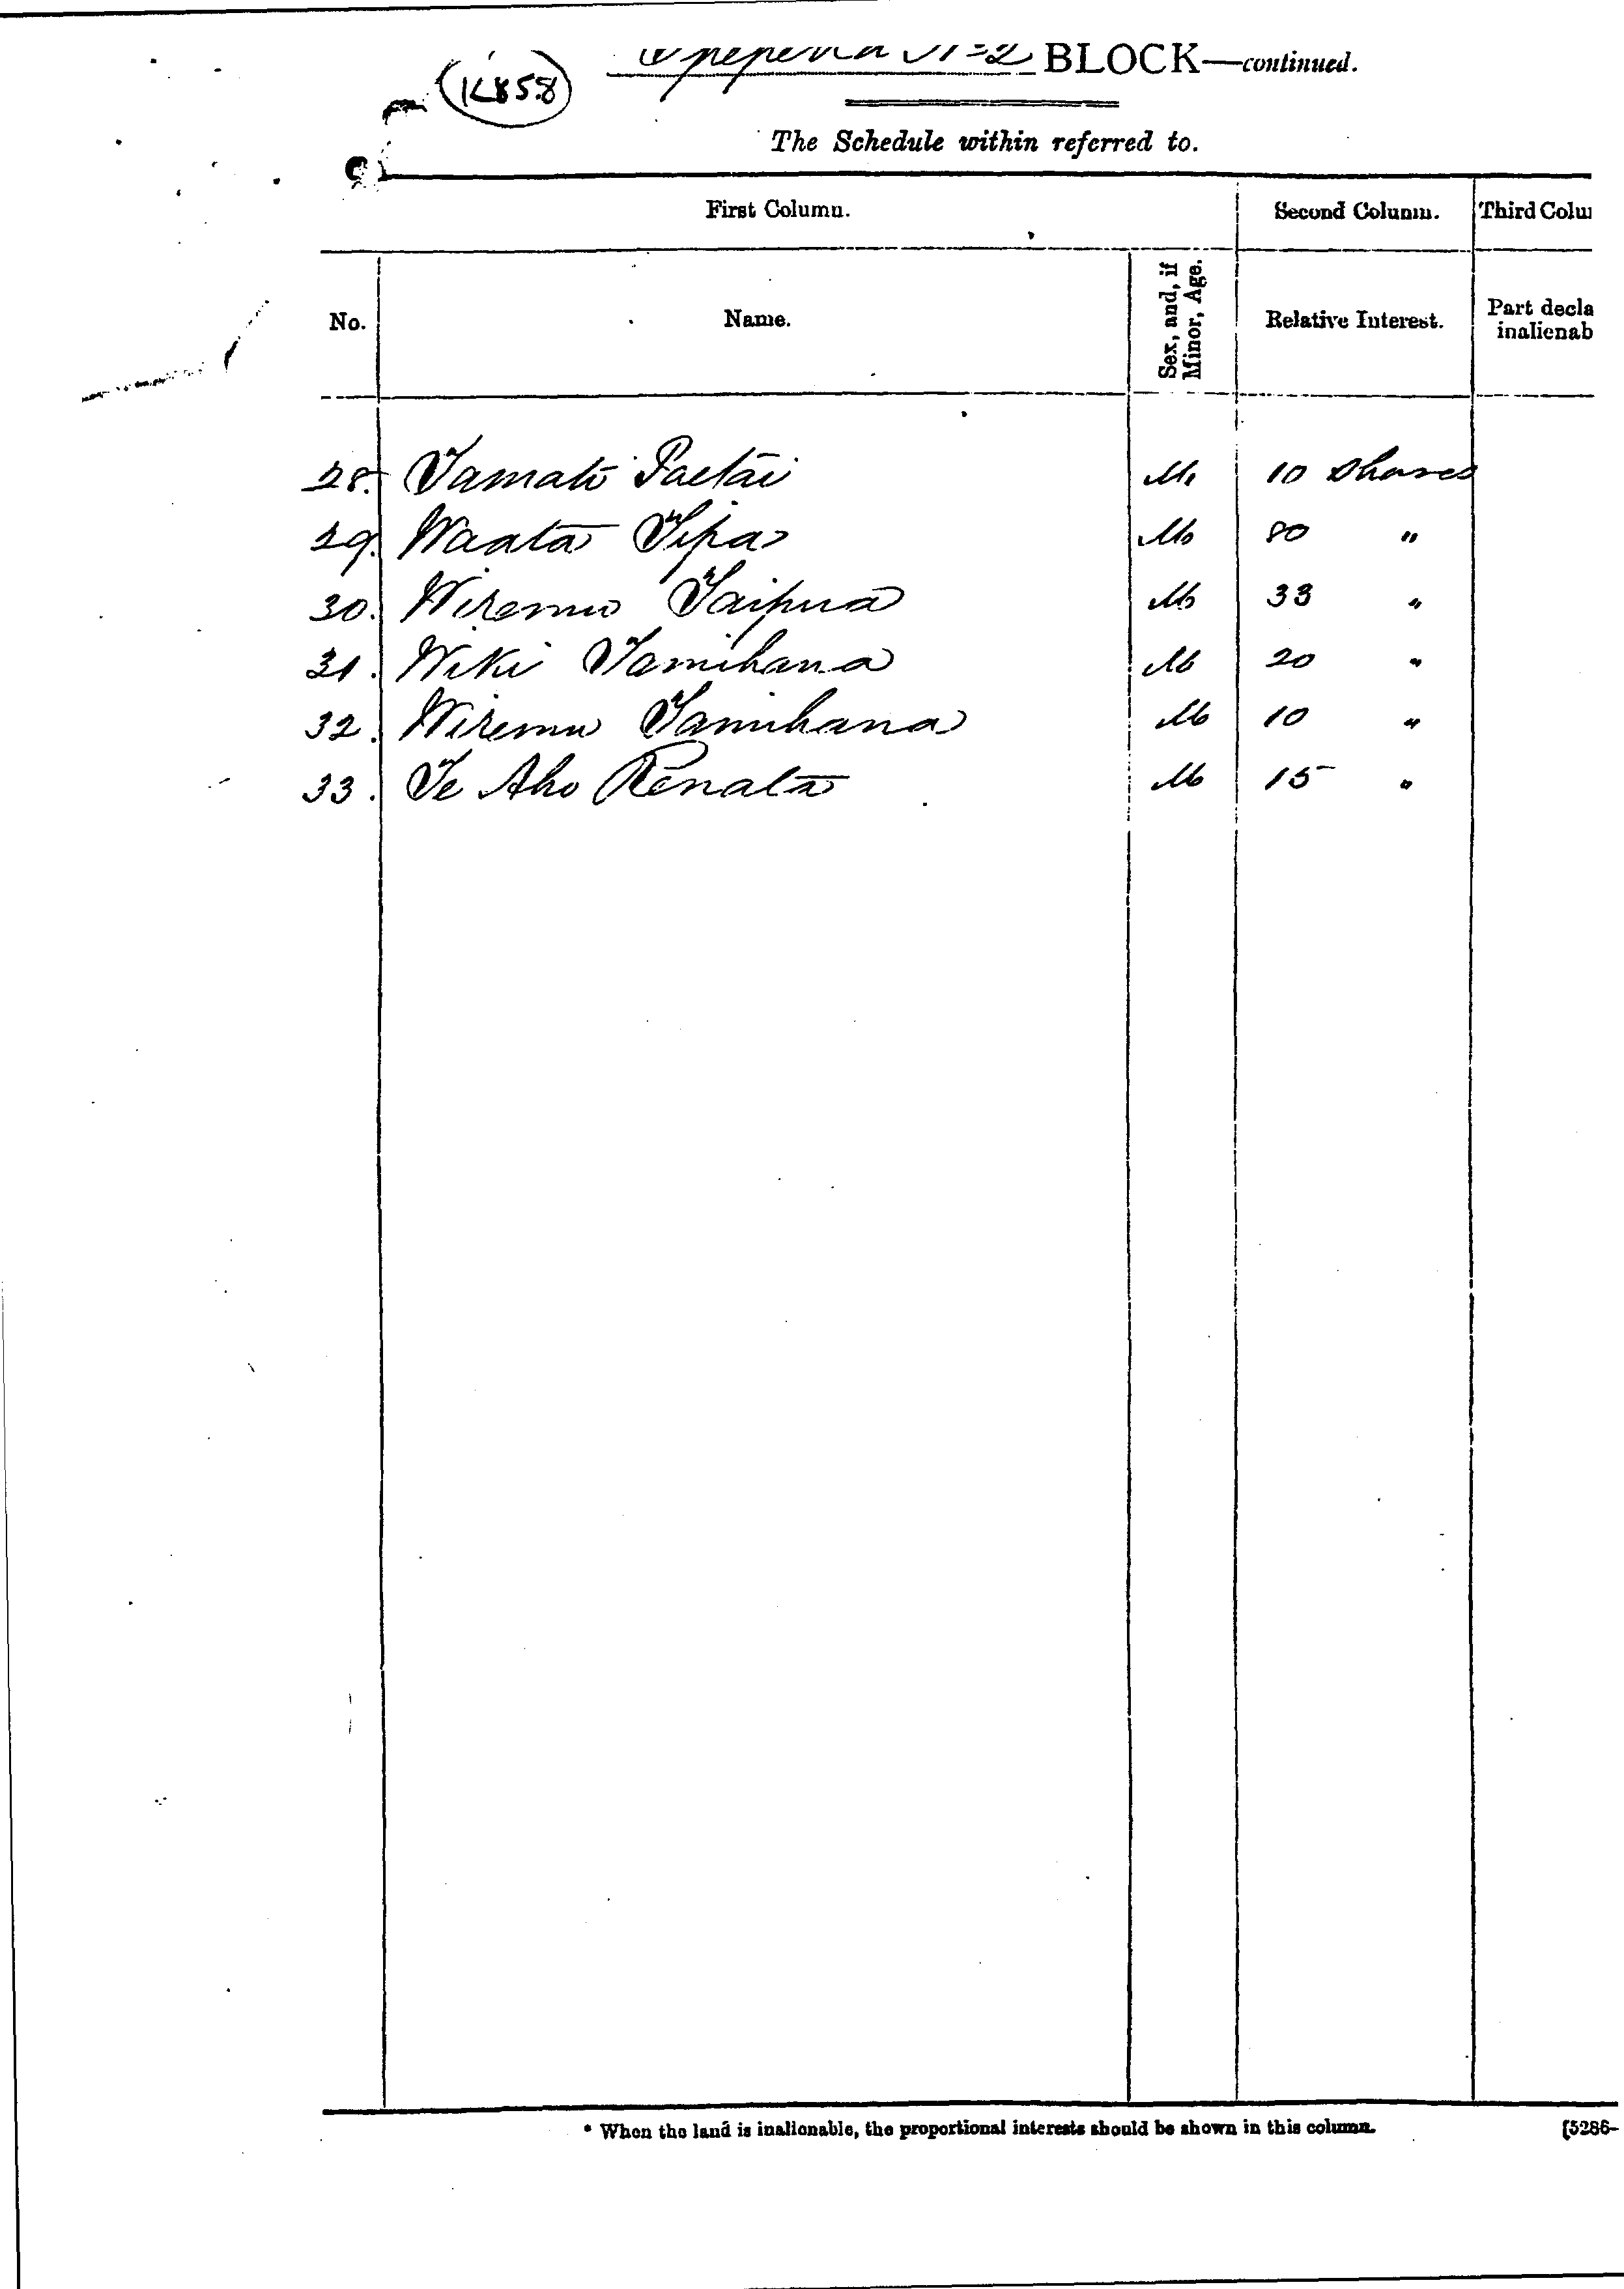 (K858)
BLOCK—continued.
The Schedule within referred to.
First Column. Second Column. Third Colu
No. Name. Sex, and, if Minor, Age. Relative Interest. Part decla inalienab
28. Tamati Paetai M. 10 Shares
29. Waata Tipa M. 80 "
30. Wiremu Taipua M. 33 "
31. Wiki Tamihana M 20 "
32. Wiremu Tamihana M 10 "
33. Te Aho Renata M 15 "
* When the land is inalienable, the proportional interests should be shown in this column. [5286-